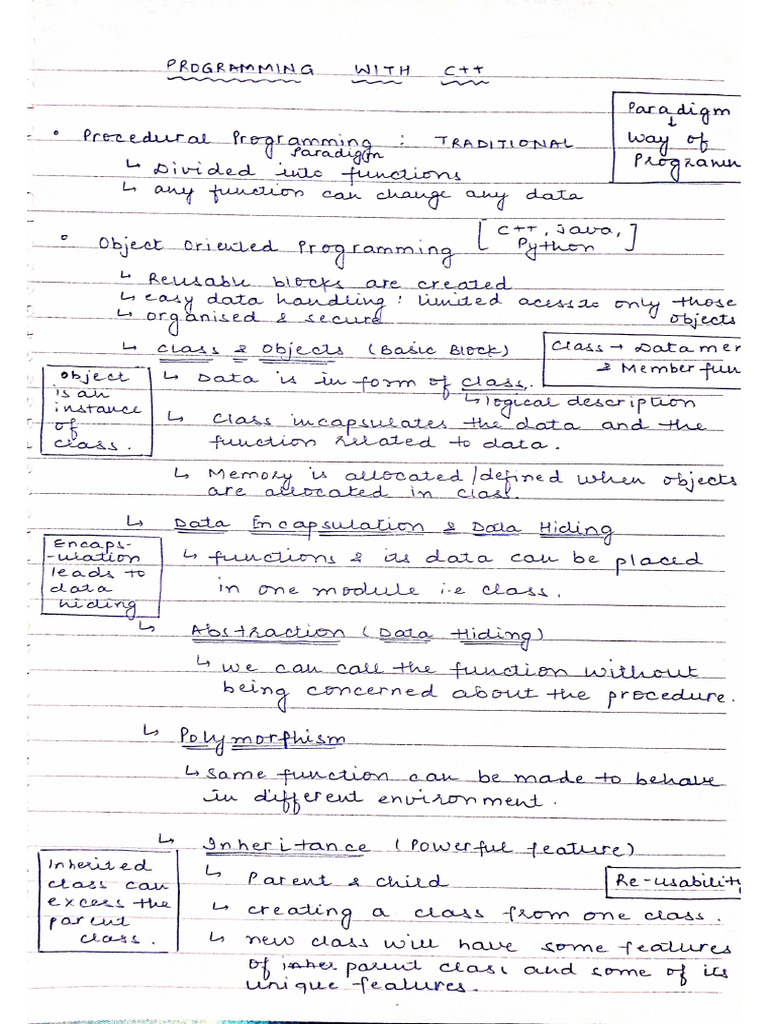 PROGRAMMING WITH C++
Paradigm
↓
Way of
Programm
• Procedural Programming : TRADITIONAL
Paradigm
↳ Divided into functions
↳ any function can change any data
• Object Oriented Programming [C++, Java,
Python]
↳ Reusable blocks are created
↳ easy data handling : limited acess to only those
objects
↳ organised & secure
↳ Class & Objects (Basic Block)
Class → Data mem
& Member fun
Object
is an
instance
of
class.
↳ Data is in form of class.
↳ logical description
↳ Class incapsulates the data and the
function related to data.
↳ Memory is allocated/defined when objects
are allocated in class.
↳ Data Encapsulation & Data Hiding
Encaps-
-ulation
leads to
data
hiding
↳ functions & its data can be placed
in one module i.e class.
↳ Abstraction (Data Hiding)
↳ we can call the function without
being concerned about the procedure.
↳ Polymorphism
↳ same function can be made to behave
in different environment.
↳ Inheritance (Powerful feature)
Inherited
class can
excess the
parent
class.
↳ Parent & child
Re-usability
↳ creating a class from one class.
↳ new class will have some features
of inher parent class and some of its
unique features.